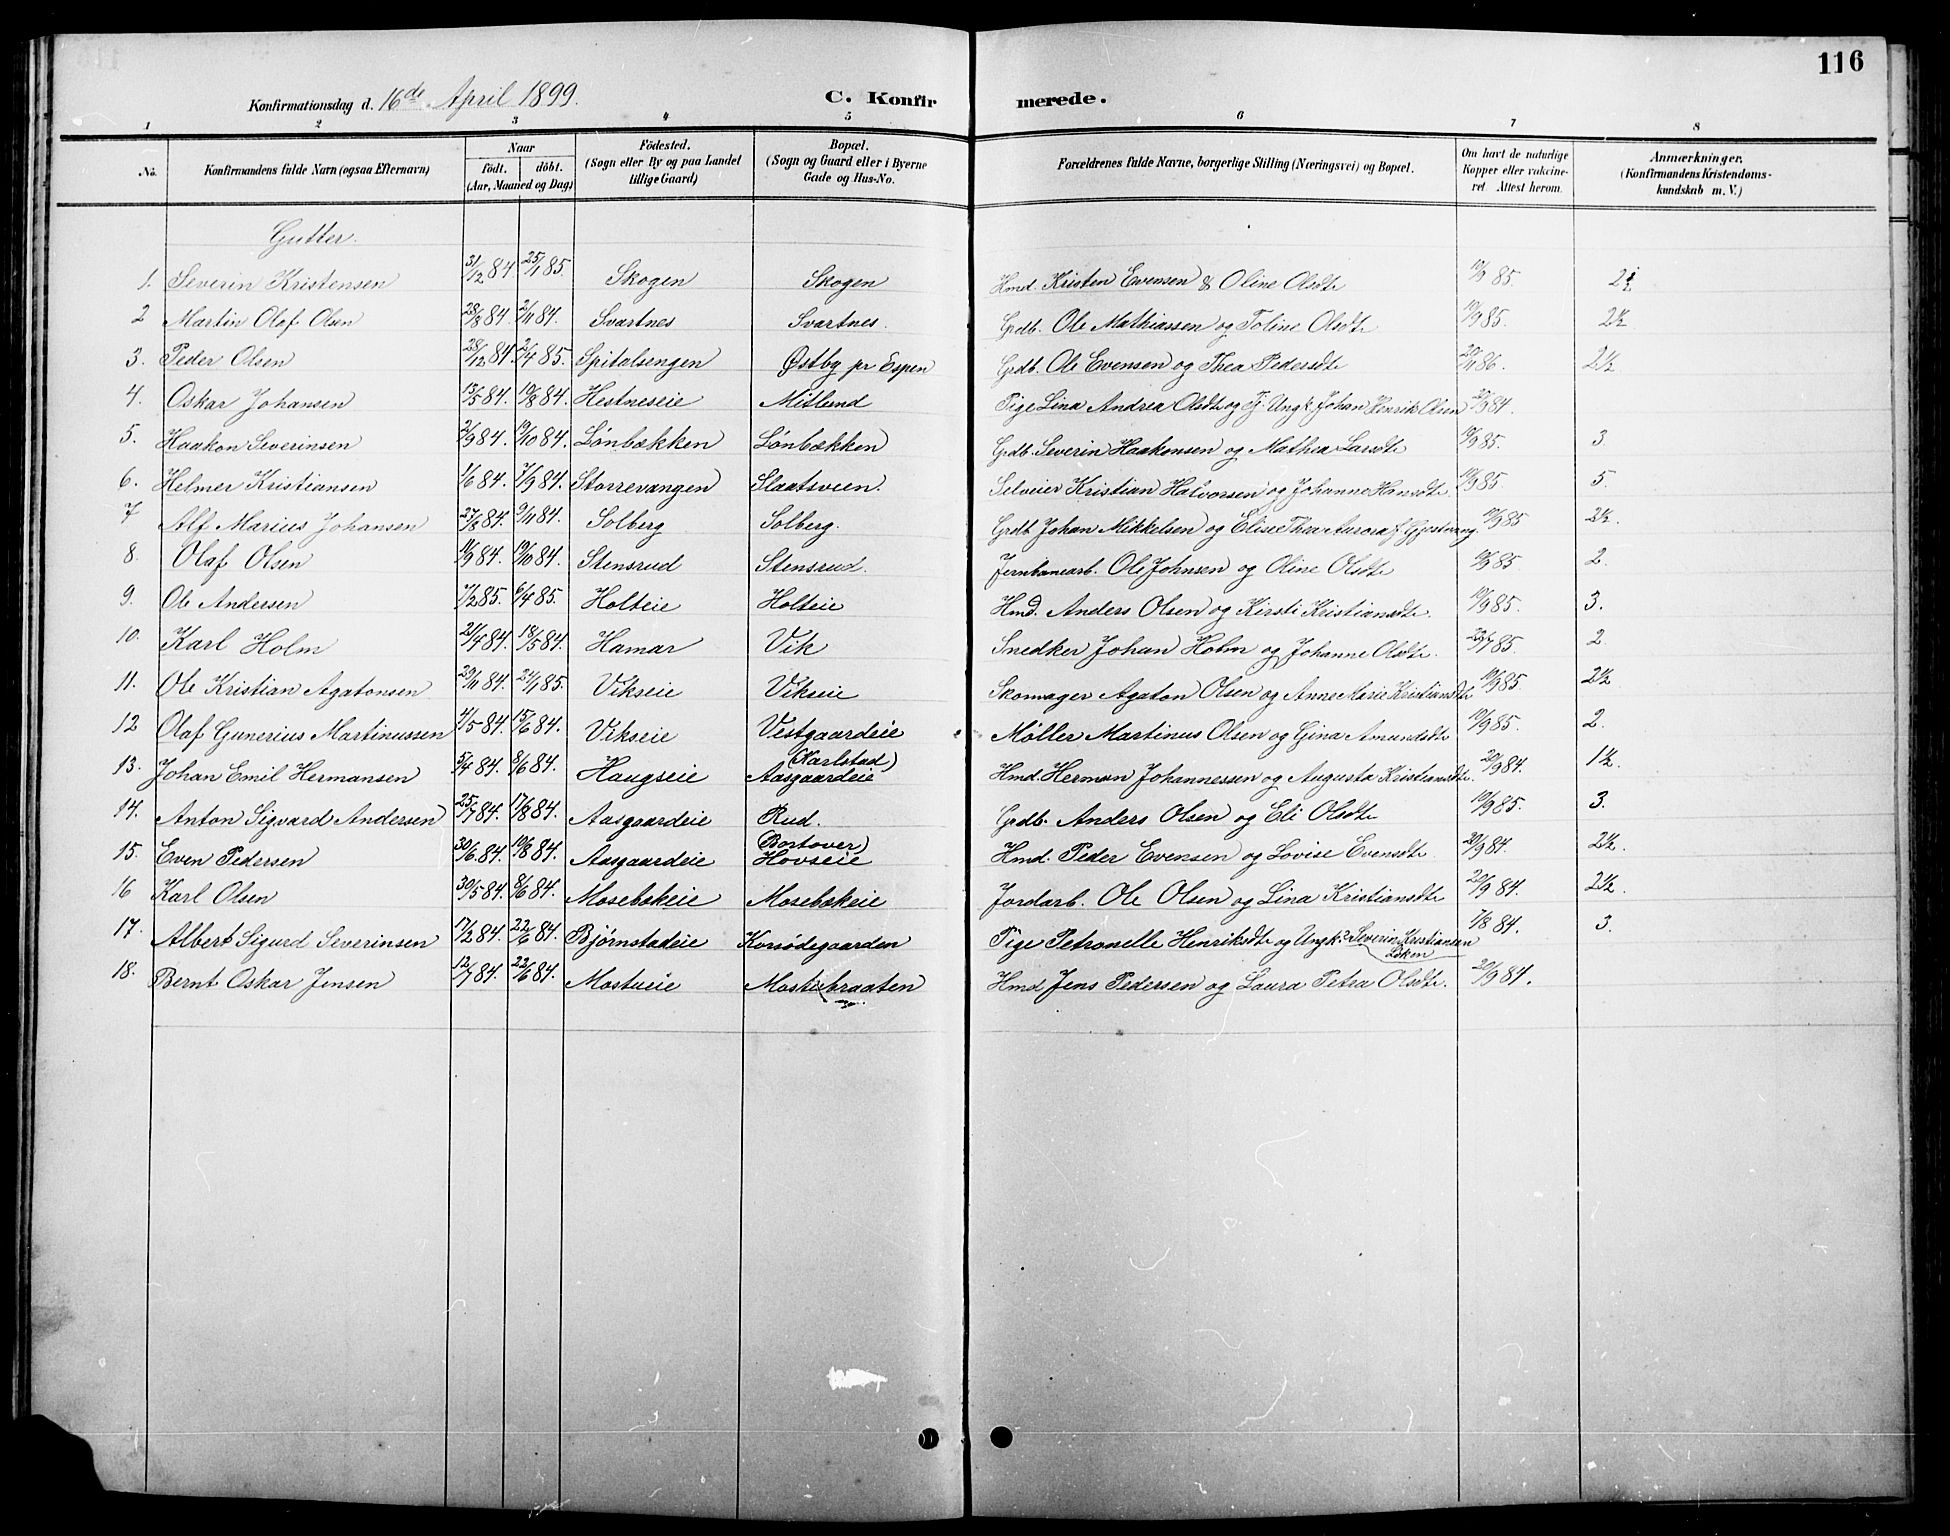 116
Konfirmationsdag d. 16de April 1899. C. Konfirmerede.
1 2 3 4 5 6 7 8
No. Konfirmandens fulde Navn (ogsaa Efternavn) Naar født. døbt. (Aar, Maaned og Dag) Födested. (Sogn eller By og paa Landet tillige Gaard) Bopæl. (Sogn og Gaard eller i Byerne Gade og Hus-No. Forældrenes fulde Navne, borgerlige Stilling (Næringsvei) og Bopæl. Om havt de naturlige Kopper eller vakcineret Attest herom. Anmærkninger. (Konfirmandens Kristendomskundskab m. V.)
Gutter.
1. Severin Kristensen 31/12 84 25/1 85. Skogen Skogen Hmd. Kristen Evensen & Oline Olsdtr 10/9 85. 2½
2 Martin Olaf Olsen 28/8 84 2/11 84. Svartnes Svartnes. Grdb. Ole Mathiassen og Toline Olsdtr 10/9 85. 2½
3. Peder Olsen 28/12 84. 2/4 85. Spitalsengen Østby pr Espen Grdb. Ole Evensen og Thea Pedersdtr 20/11 86. 2½
4. Oskar Johansen 13/5 84. 10/8 84. Hestneseie Mitlund Pige Lina Andrea Olsdtr og Tj. Ungk. Johan Henrik Olsen 20/9 84.
5. Haakon Severinsen 2/9 84. 19/10 84. Lønbækken Lønbækken Grdb. Severin Haakensen og Mathea Larsdtr 10/9 85. 3.
6. Helmer Kristiansen 1/6 84. 7/9 84. Storrevangen Slaatsveen. Selveier Kristian Halvorsen og Johanne Hansdtr 10/9 85. 5.
7 Alf Marius Johansen 27/8 84. 9/11 84. Solberg Solberg. Grdb Johan Mikkelsen og Elise Thea Aurora f. Gjestvang. 10/9 85 2½.
8. Olaf Olsen 11/9 84. 19/10 84. Stensrud Stensrud. Jernbanearb. Ole Johnsen og Oline Olsdtr 10/9 85. 2.
9. Ole Andersen 7/2 85. 6/4 85. Holteie Holteie Hmd. Anders Olsen og Kirsti Kristiansdtr. 10/9 85. 3.
10. Karl Holm 21/4 84. 18/5 84. Hamar Vik Snedker Johan Holm og Johanne Olsdtr. 85. 2
11. Ole Kristian Agatonsen 29/11 84. 24/1 85. Vikseie Vikseie Skomager Agaton Olsen og Anne Marie Kristiansdtr 10/9 85. 2½
12 Olaf Gunerius Martinussen 4/5 84. 15/6 84. Vikseie Vestgaardeie Møller Martinus Olsen og Gina Amundsdtr 10/9 85. 2.
13. Johan Emil Hermansen 5/4 84. 8/6 84. Haugseie (Karlstad) Aasgaardeie Hmd. Herman Johannessen og Augusta Kristiansdtr. 20/9 84. 1½.
14. Anton Sigvard Andersen 25/7 84. 17/8 84. Aasgaardeie Rud. Grdb. Anders Olsen og Eli Olsdtr 10/9 85. 3.
15. Even Pedersen 30/6 84. 10/8 84. Aasgaardeie Bortover) Hovseie Hmd. Peder Evensen og Lovise Evensdtr 20/9 84. 2½.
16 Karl Olsen 30/5 84. 8/6 84. Mosebækeie Mosebækeie Jordarb. Ole Olsen og Lina Kristiansdtr 20/9 84. 2½.
17. Albert Sigurd Severinsen 17/2 84. 22/6 84. Bjørnstadeie Korsødegaarden Pige Petronelle Henriksdtr og Ungk. Severin Kristiansen Løken 7/8 84. 3.
18. Bernt Oskar Jensen 12/7 84. 22/6 84. Mostueie Mostubraaten Hmd Jens Pedersen og Laura Petra Olsdtr. 20/9 84.